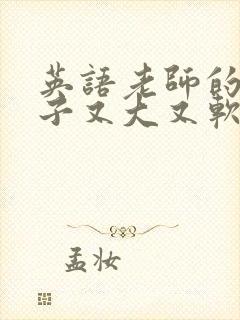 英語老師的
子又大又軟
孟妆